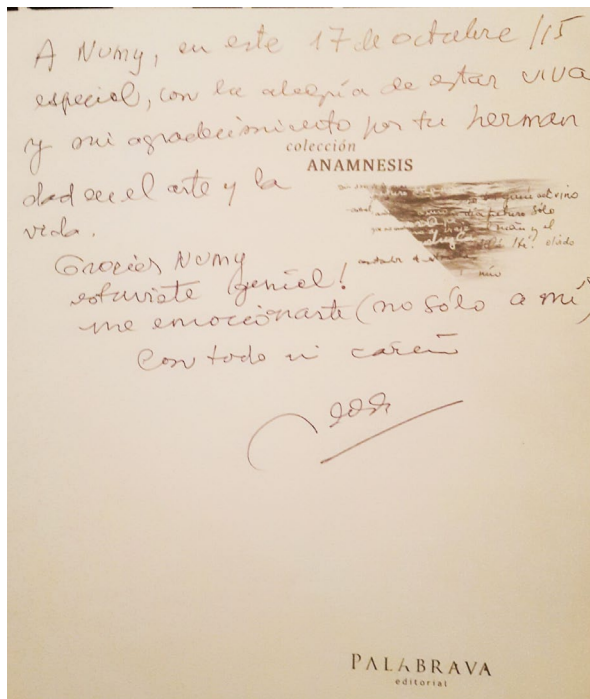 A Numy, en este 17 de octubre /15
especial, con la alegría de estar viva
y mi agradecimiento por tu herman
dad en el arte y la
vida.
colección
ANAMNESIS
Gracias Numy
estuviste genial!
me emocionaste (no sólo a mí)
Con todo mi cariño
PALABRAVA
editorial